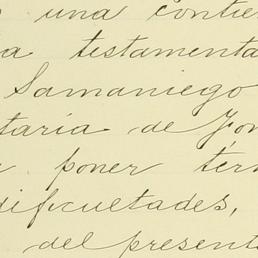 una contien
a testamenta
Samaniego
taria de Jon
poner térm
dificultades,
del present